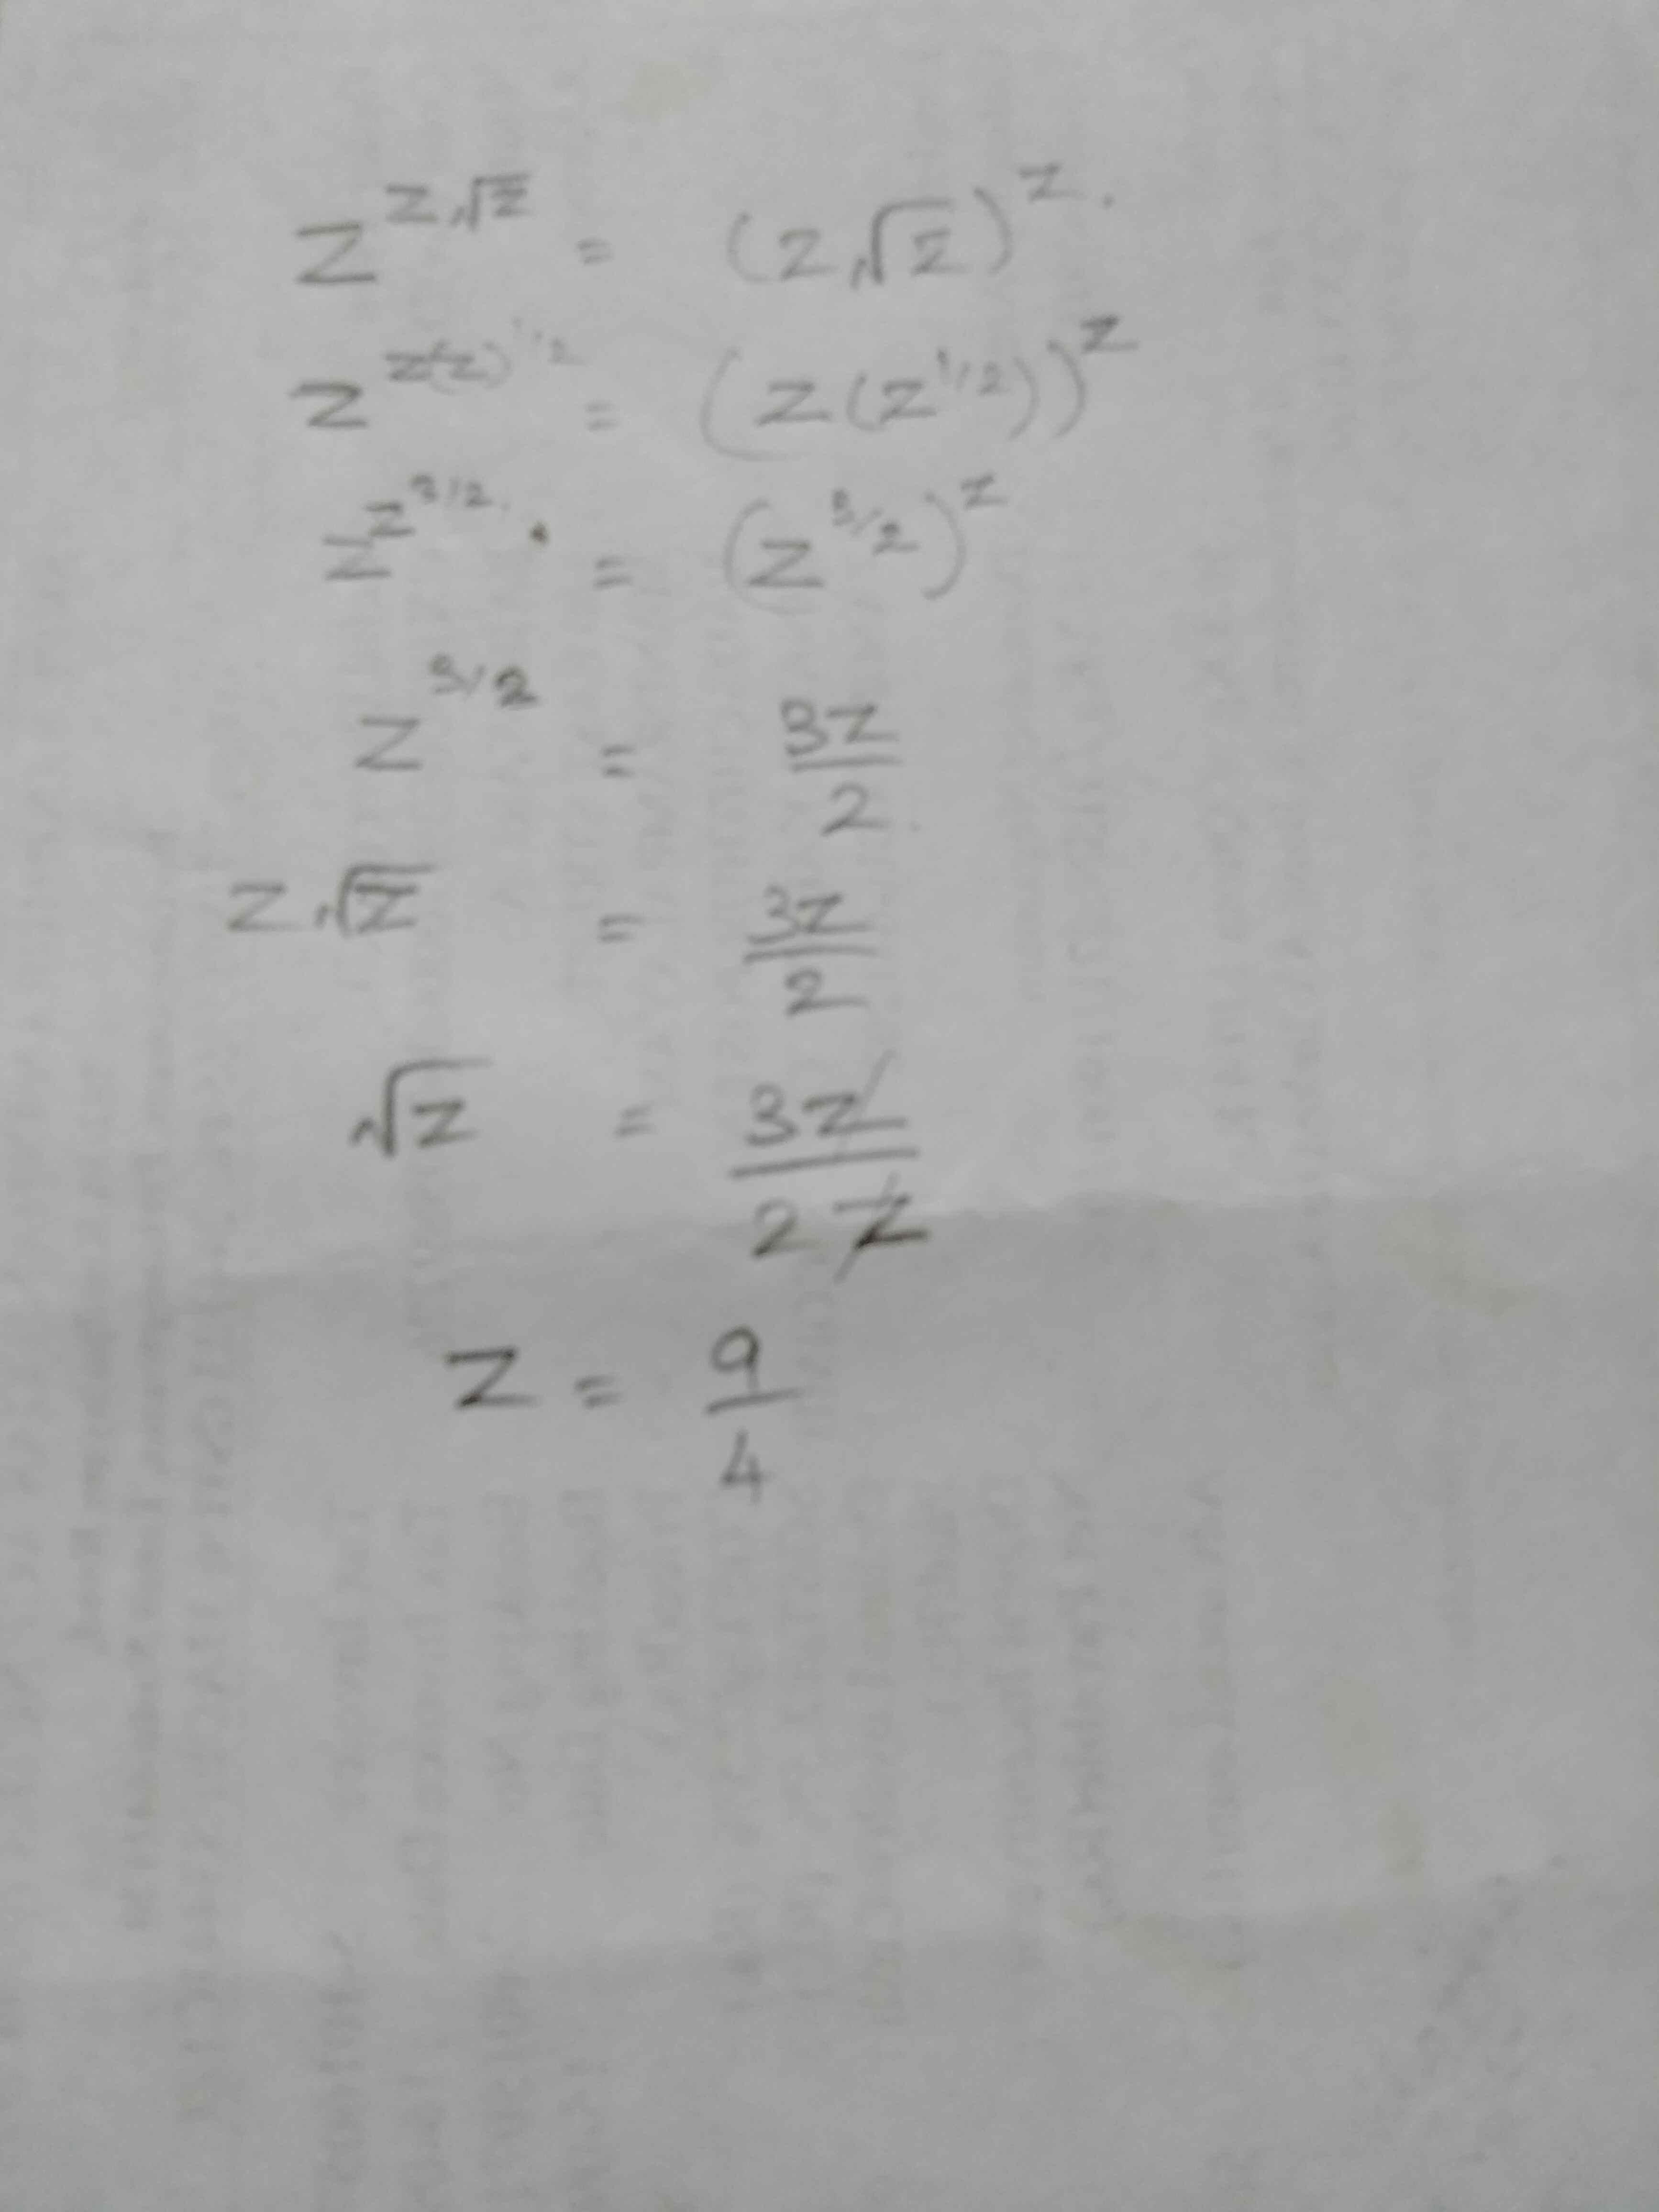 z^{z√z} = (z√z)^z.
z^{z(z)^{1/2}} = (z(z^{1/2}))^z
z^{z^{3/2}} = (z^{3/2})^z
z^{3/2} = 3z/2
z√z = 3z/2
√z = 3z/2z
z = 9/4